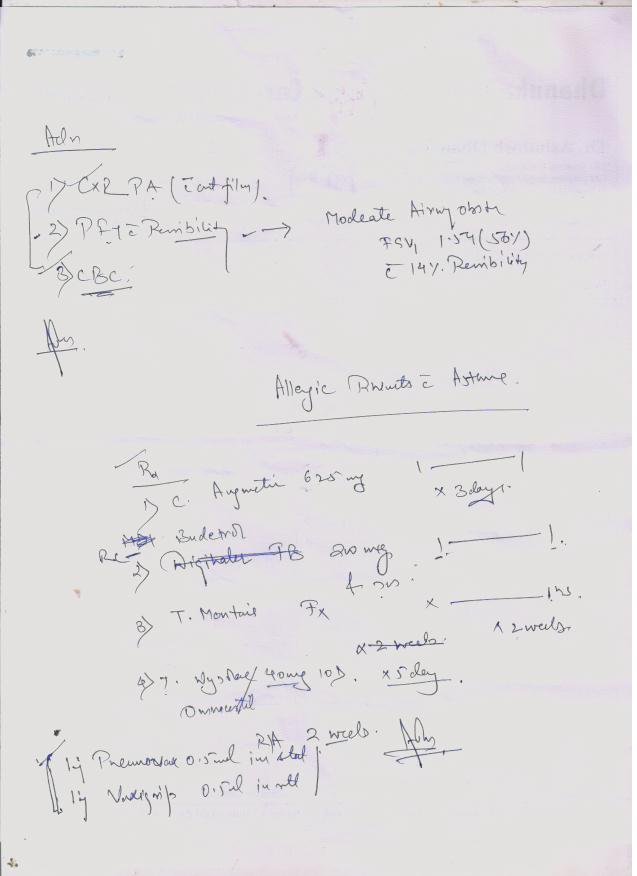 Adv
1) CXR PA (c̄ cut film).
2) PFT c̄ Reversibility → Moderate Airway obstn
FEV1 1.54 (56%)
c̄ 14% Reversibility
3) CBC.
Allergic Rhinitis c̄ Asthma.
Rx
1) C. Augmentin 625 mg 1 — 1
x 3 days.
Budetrol
2) 200 mcg 1 — 1.
3) T. Montair Fx x — 1 hs.
x 2 weeks.
x 2 weeks.
4) T. Wysolone / 40mg 1OD. x 5 day.
Omnacortil
R/A 2 weeks.
Inj Pneumovax 0.5ml im stat
Inj Vaxigrip 0.5ml im stat